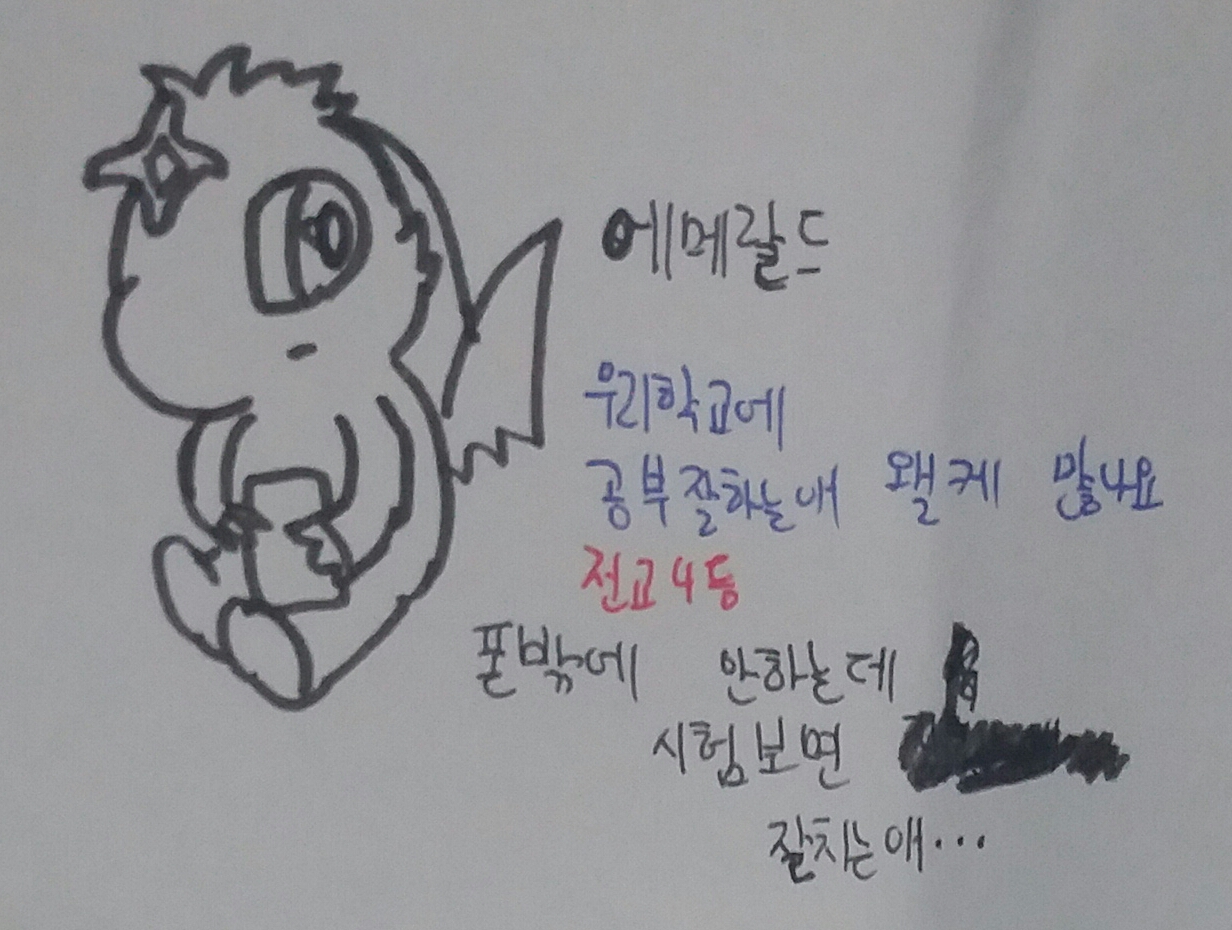 에메랄드
우리학교에
공부잘하는애 왤케 많나요
전교4등
폰밖에 안하는데
시험보면
잘치는애...